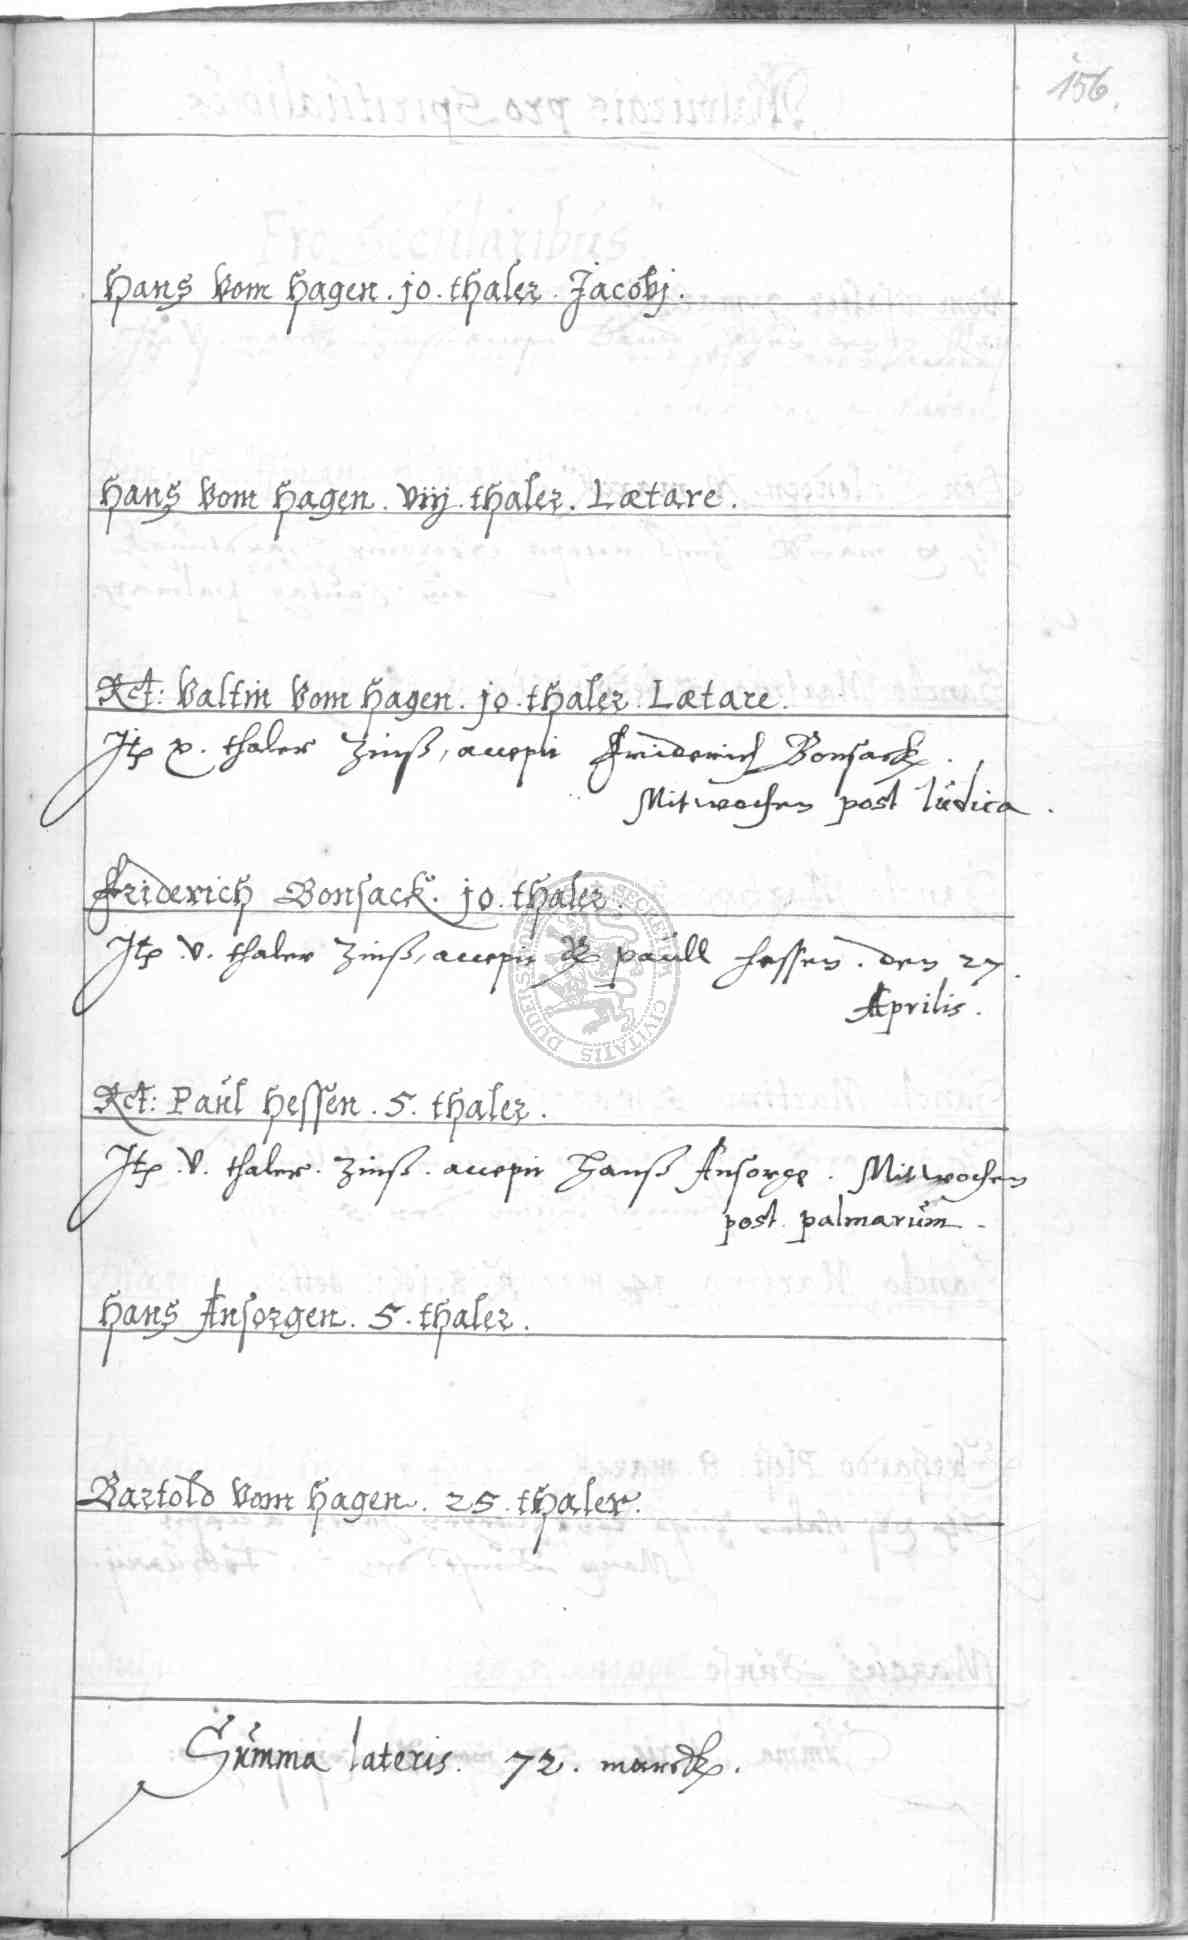 156.
Pro Secularibus
Hans vom Hagen . jo . thaler . Jacobj .
Hans vom Hagen . viij . thaler . Lætare .
Rct: Valtin vom Hagen . jo . thaler . Lætare .
Jtp x . thaler Zinß, accepit Friderich Bonsack .
Mitwochen post Iudica .
Friderich Bonsack . jo . thaler .
Jtp . v . thaler Zinß, accepit paull Hessen . den 27 .
Aprilis .
Rct: Paul Hessen . 5 . thaler .
Jtp . v . thaler . Zinß . accepit Hanß Ansorge . Mitwochen
post palmarum .
Hans Ansorgen . 5 . thaler .
Bartold vom Hagen . 25 . thaler .
Summa lateris . 72 . marck .
SECRETUM CIVITATIS DUDERST